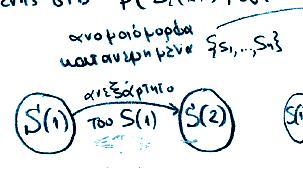 ανομοιόμορφα
κατανεμημένα {s₁,...,sₙ}
ανεξάρτητο
S(1) του S(1) S(2)